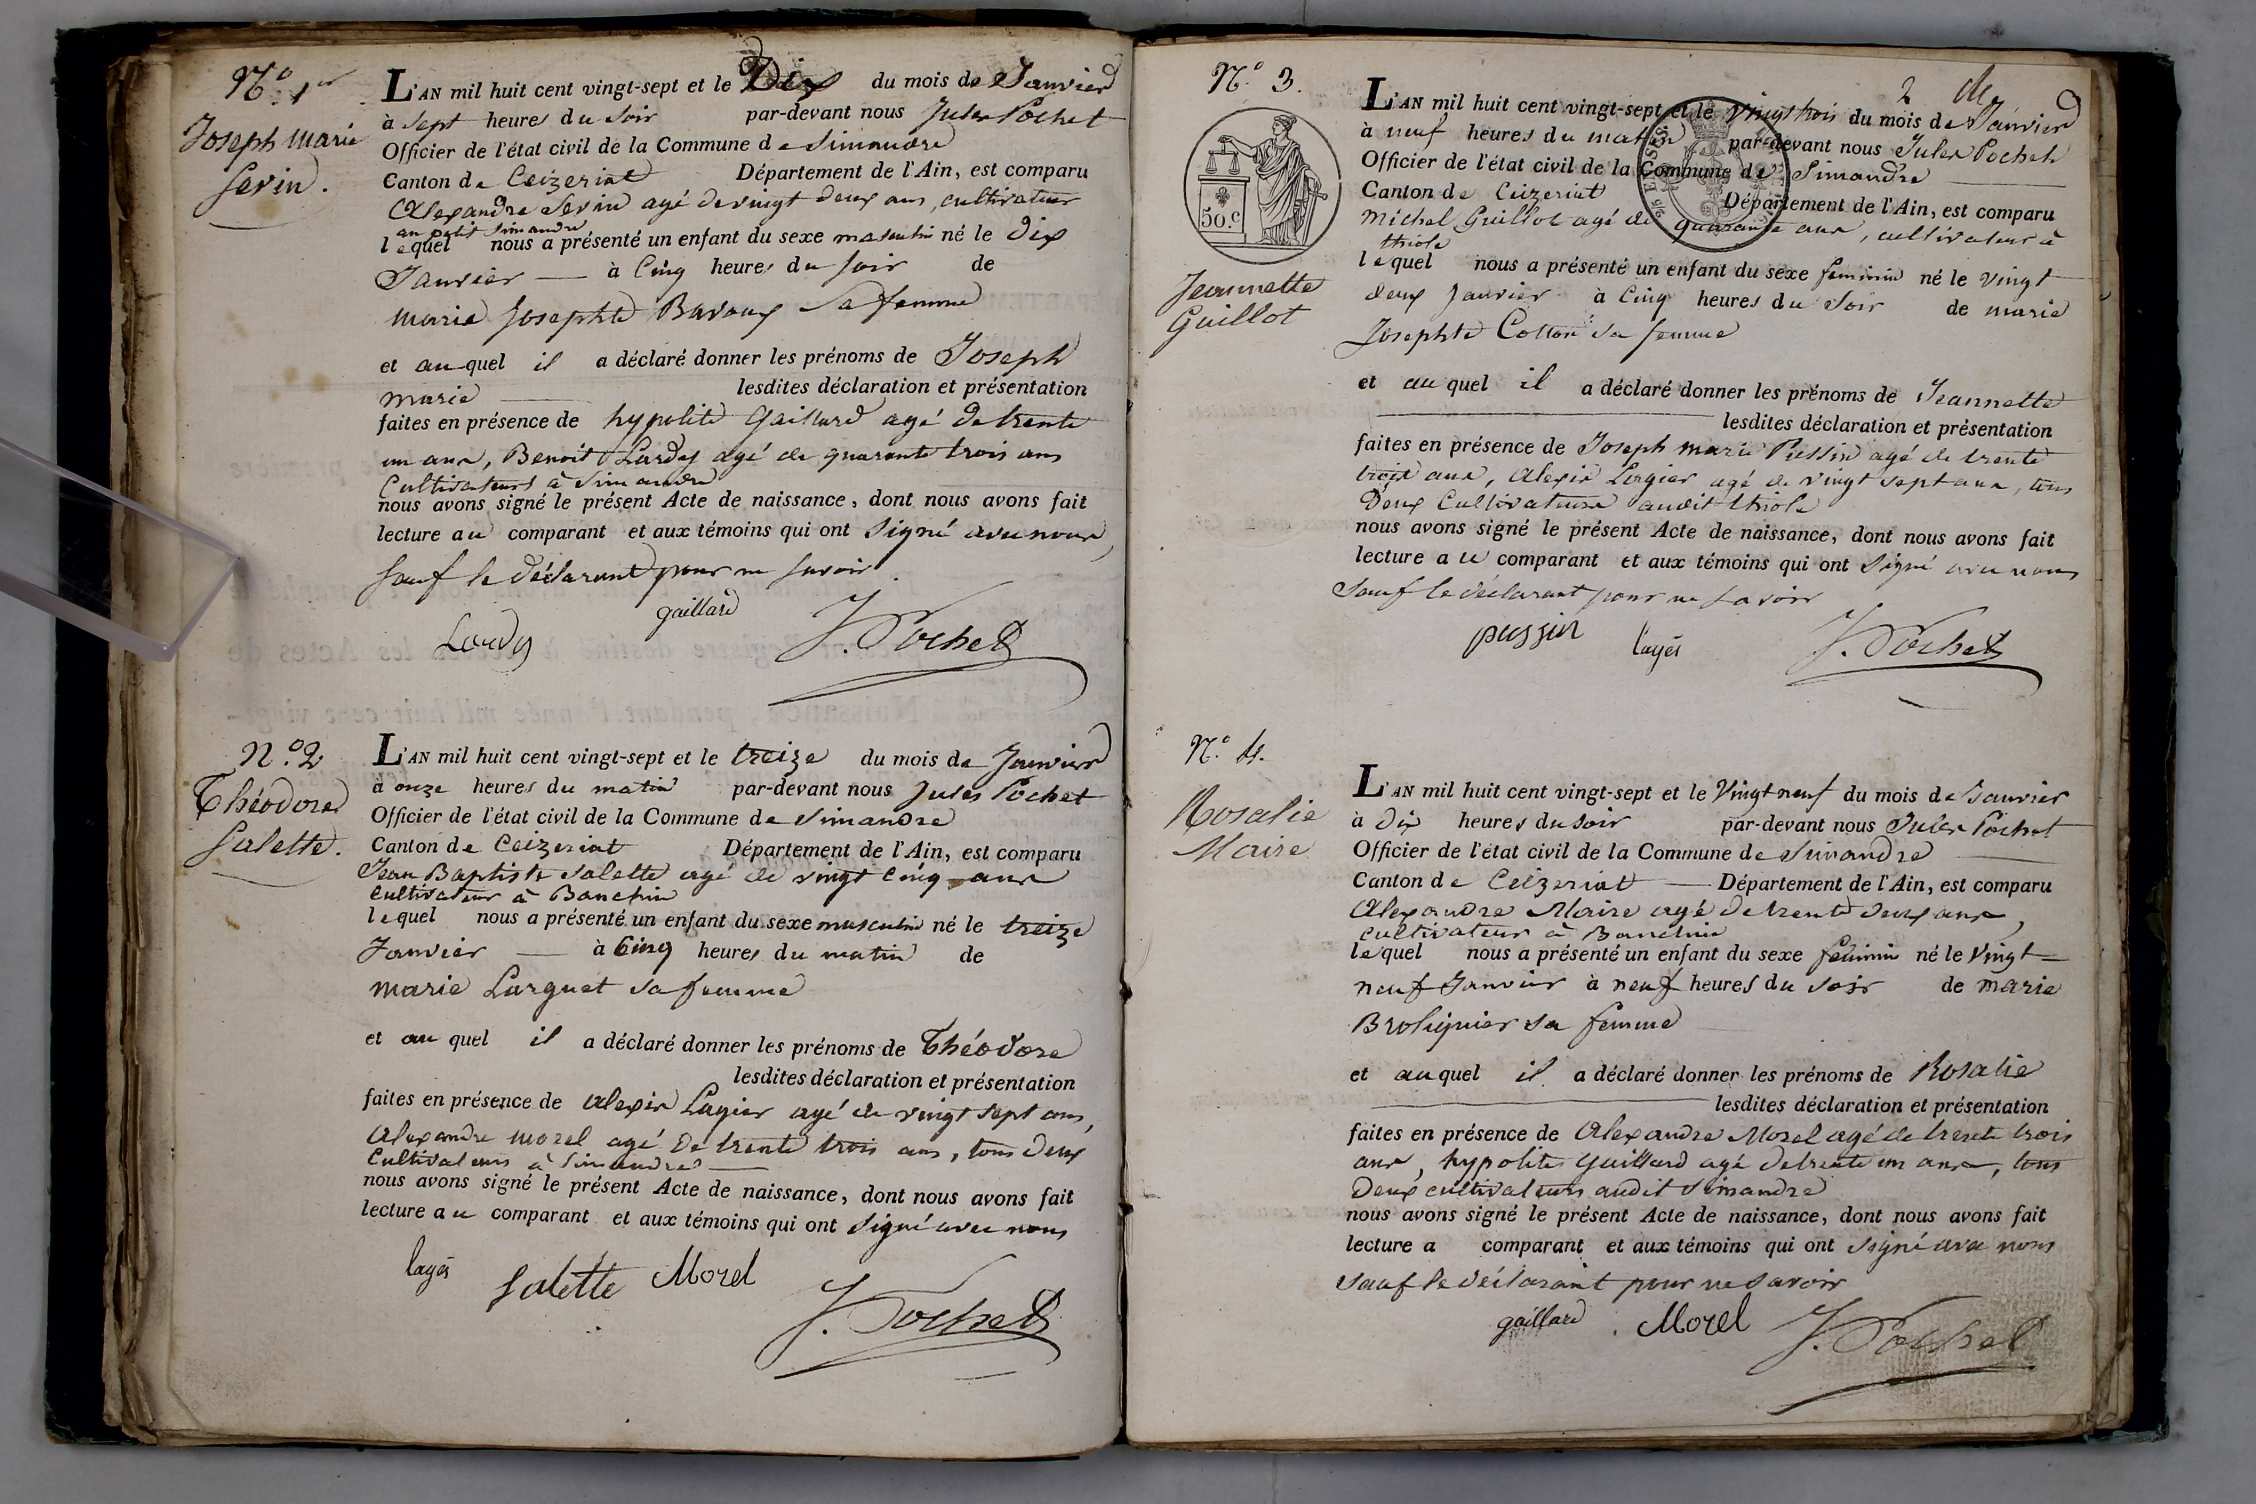 N.o 1er
Joseph marie
Sevin.
L'AN mil huit cent vingt-sept et le Dix du mois de Janvier
à sept heures du soir par-devant nous Jules Pochet
Officier de l'état civil de la Commune de Simandre
Canton de Ceizeriat Département de l'Ain, est comparu
Alexandre Sevin agé de vingt deux ans, cultivateur
au petit Simandre
lequel nous a présenté un enfant du sexe masculin né le dix
Janvier — à Cinq heures du soir de
marie Josephte Bavoux sa femme
et auquel il a déclaré donner les prénoms de Joseph
marie lesdites déclaration et présentation
faites en présence de hypolite Gaillard agé de trente
un ans, Benoit Lardy agé de quarante trois ans
Cultivateurs à Simandre
nous avons signé le présent Acte de naissance, dont nous avons fait
lecture au comparant et aux témoins qui ont signé avec nous,
sauf le déclarant pour ne savoir
gaillard
Lardy J. Pochet
N.o 2
Théodore
Salette.
L'AN mil huit cent vingt-sept et le treize du mois de Janvier
à onze heures du matin par-devant nous Jules Pochet
Officier de l'état civil de la Commune de Simandre
Canton de Ceizeriat Département de l'Ain, est comparu
Jean Baptiste Salette agé de vingt cinq ans
cultivateur à Banchin
lequel nous a présenté un enfant du sexe masculin né le treize
Janvier — à Cinq heures du matin de
marie Larguet sa femme
et auquel il a déclaré donner les prénoms de Théodore
lesdites déclaration et présentation
faites en présence de alexis Lagier agé de vingt sept ans,
Alexandre morel agé de trente trois ans, tous deux
Cultivateurs à Simandre
nous avons signé le présent Acte de naissance, dont nous avons fait
lecture au comparant et aux témoins qui ont signé avec nous
Salette Morel
J. Pochet
2
N.o 3.
50.c
Jeannette
Guillot
L'AN mil huit cent vingt-sept et le vingt trois du mois de Janvier
à neuf heures du matin par-devant nous Jules Pochet
Officier de l'état civil de la Commune de Simandre
Canton de Ceizeriat Département de l'Ain, est comparu
michel Guillot agé de quarante ans, cultivateur à
thiole
lequel nous a présenté un enfant du sexe feminin né le vingt
deux Janvier à Cinq heures du soir de marie
Josephte Cotton sa femme
et auquel il a déclaré donner les prénoms de Jeannette
lesdites déclaration et présentation
faites en présence de Joseph marie Pussin agé de trente
trois ans, alexis Lagier agé de vingt sept ans, tous
Deux Cultivateurs audit thiole
nous avons signé le présent Acte de naissance, dont nous avons fait
lecture au comparant et aux témoins qui ont signé avec nous
sauf le déclarant pour ne savoir
pussin J. Pochet
N.o 4.
Rosalie
Maire
L'AN mil huit cent vingt-sept et le Vingt neuf du mois de Janvier
à Dix heures du soir par-devant nous Jules Pochet
Officier de l'état civil de la Commune de Simandre
Canton de Ceizeriat — Département de l'Ain, est comparu
Alexandre Maire agé de trente deux ans,
cultivateur à Banchin
lequel nous a présenté un enfant du sexe féminin né le Vingt
neuf Janvier à neuf heures du soir de marie
sa femme
et auquel il a déclaré donner les prénoms de Rosalie
lesdites déclaration et présentation
faites en présence de Alexandre Morel agé de trente trois
ans, hypolite gaillard agé de trente un ans, tous
Deux cultivateurs audit Simandre
nous avons signé le présent Acte de naissance, dont nous avons fait
lecture a comparant et aux témoins qui ont signé avec nous
sauf le déclarant pour ne savoir
gaillard. Morel J. Pochet